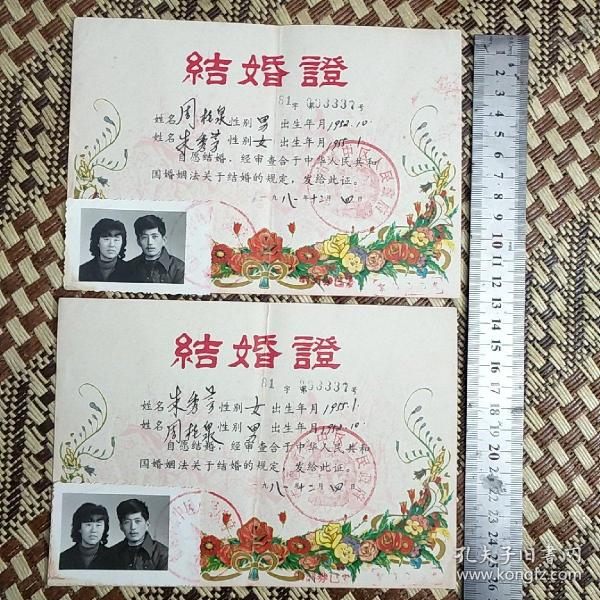 結婚證
81字 第003337号
姓名 周桂泉 性别 男 出生年月 1952.10.
姓名 朱秀芳 性别 女 出生年月 1955.1.
自愿结婚，经审查合于中华人民共和
国婚姻法关于结婚的规定，发给此证。
一九八一年十二月四日
結婚證
81字 第003337号
姓名 朱秀芳 性别 女 出生年月 1955.1.
姓名 周桂泉 性别 男 出生年月 1952.10.
自愿结婚，经审查合于中华人民共和
国婚姻法关于结婚的规定，发给此证。
一九八一年十二月四日
1 2 3 4 5 6 7 8 9 10 11 12 13 14 15 16 17 18 19 20 21 22 23 24 25 26
孔夫子旧书网
www.kongfz.com